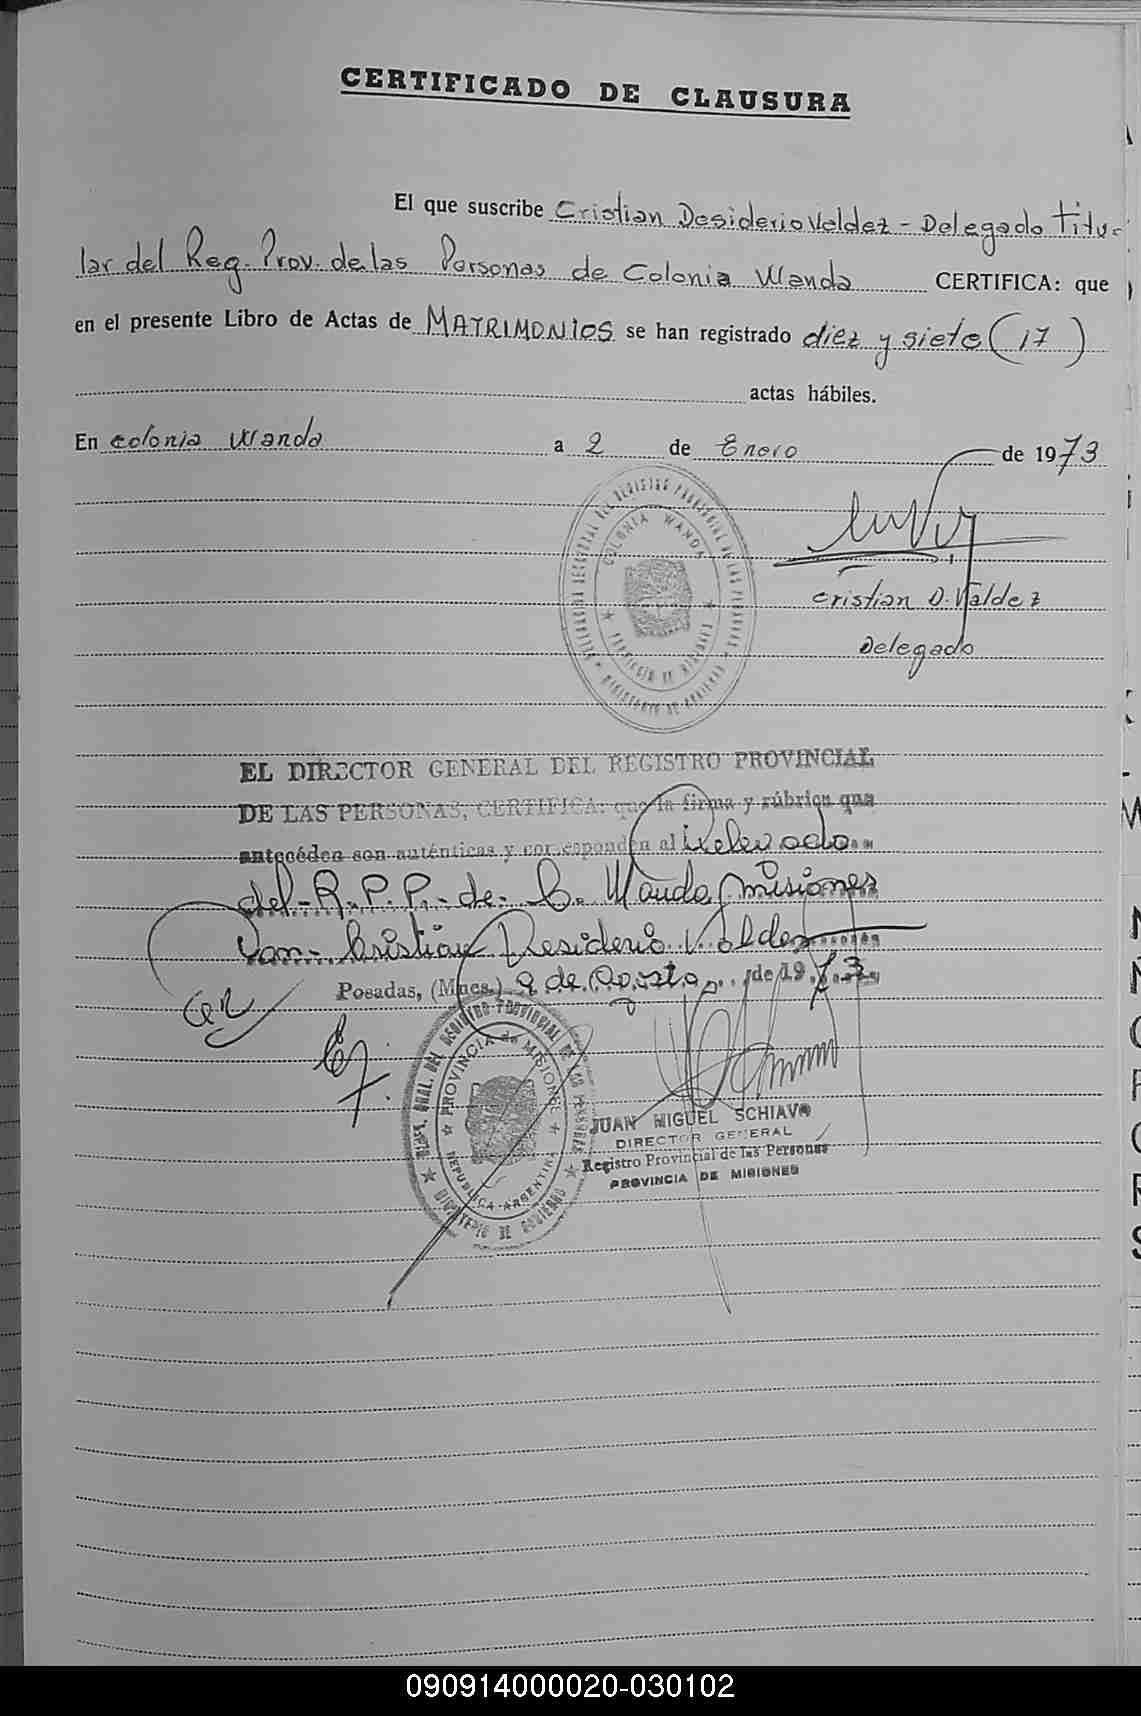 CERTIFICADO DE CLAUSURA
El que suscribe Cristian Desiderio Valdez - Delegado Titu-
lar del Reg. Prov. de las Personas de Colonia Wanda CERTIFICA: que
en el presente Libro de Actas de MATRIMONIOS se han registrado diez y siete (17)
actas hábiles.
En colonia Wanda a 2 de Enero de 1973
DELEGACION SECCIONAL DEL REGISTRO PROVINCIAL DE LAS PERSONAS
COLONIA WANDA
PROVINCIA DE MISIONES
MINISTERIO DE GOBIERNO
Cristian D. Valdez
Delegado
EL DIRECTOR GENERAL DEL REGISTRO PROVINCIAL
DE LAS PERSONAS, CERTIFICA: que la firma y rúbrica que
antecéden son auténticas y corresponden al
del R.P.P. de C. Wanda Misiones
Don Cristian Desiderio Valdez
Posadas, (Mnes.) 9 de Agosto de 1973
PROVINCIA de MISIONES
REPUBLICA ARGENTINA
MINISTERIO DE GOBIERNO
JUAN MIGUEL SCHIAVO
DIRECTOR GENERAL
Registro Provincial de las Personas
PROVINCIA DE MISIONES
090914000020-030102